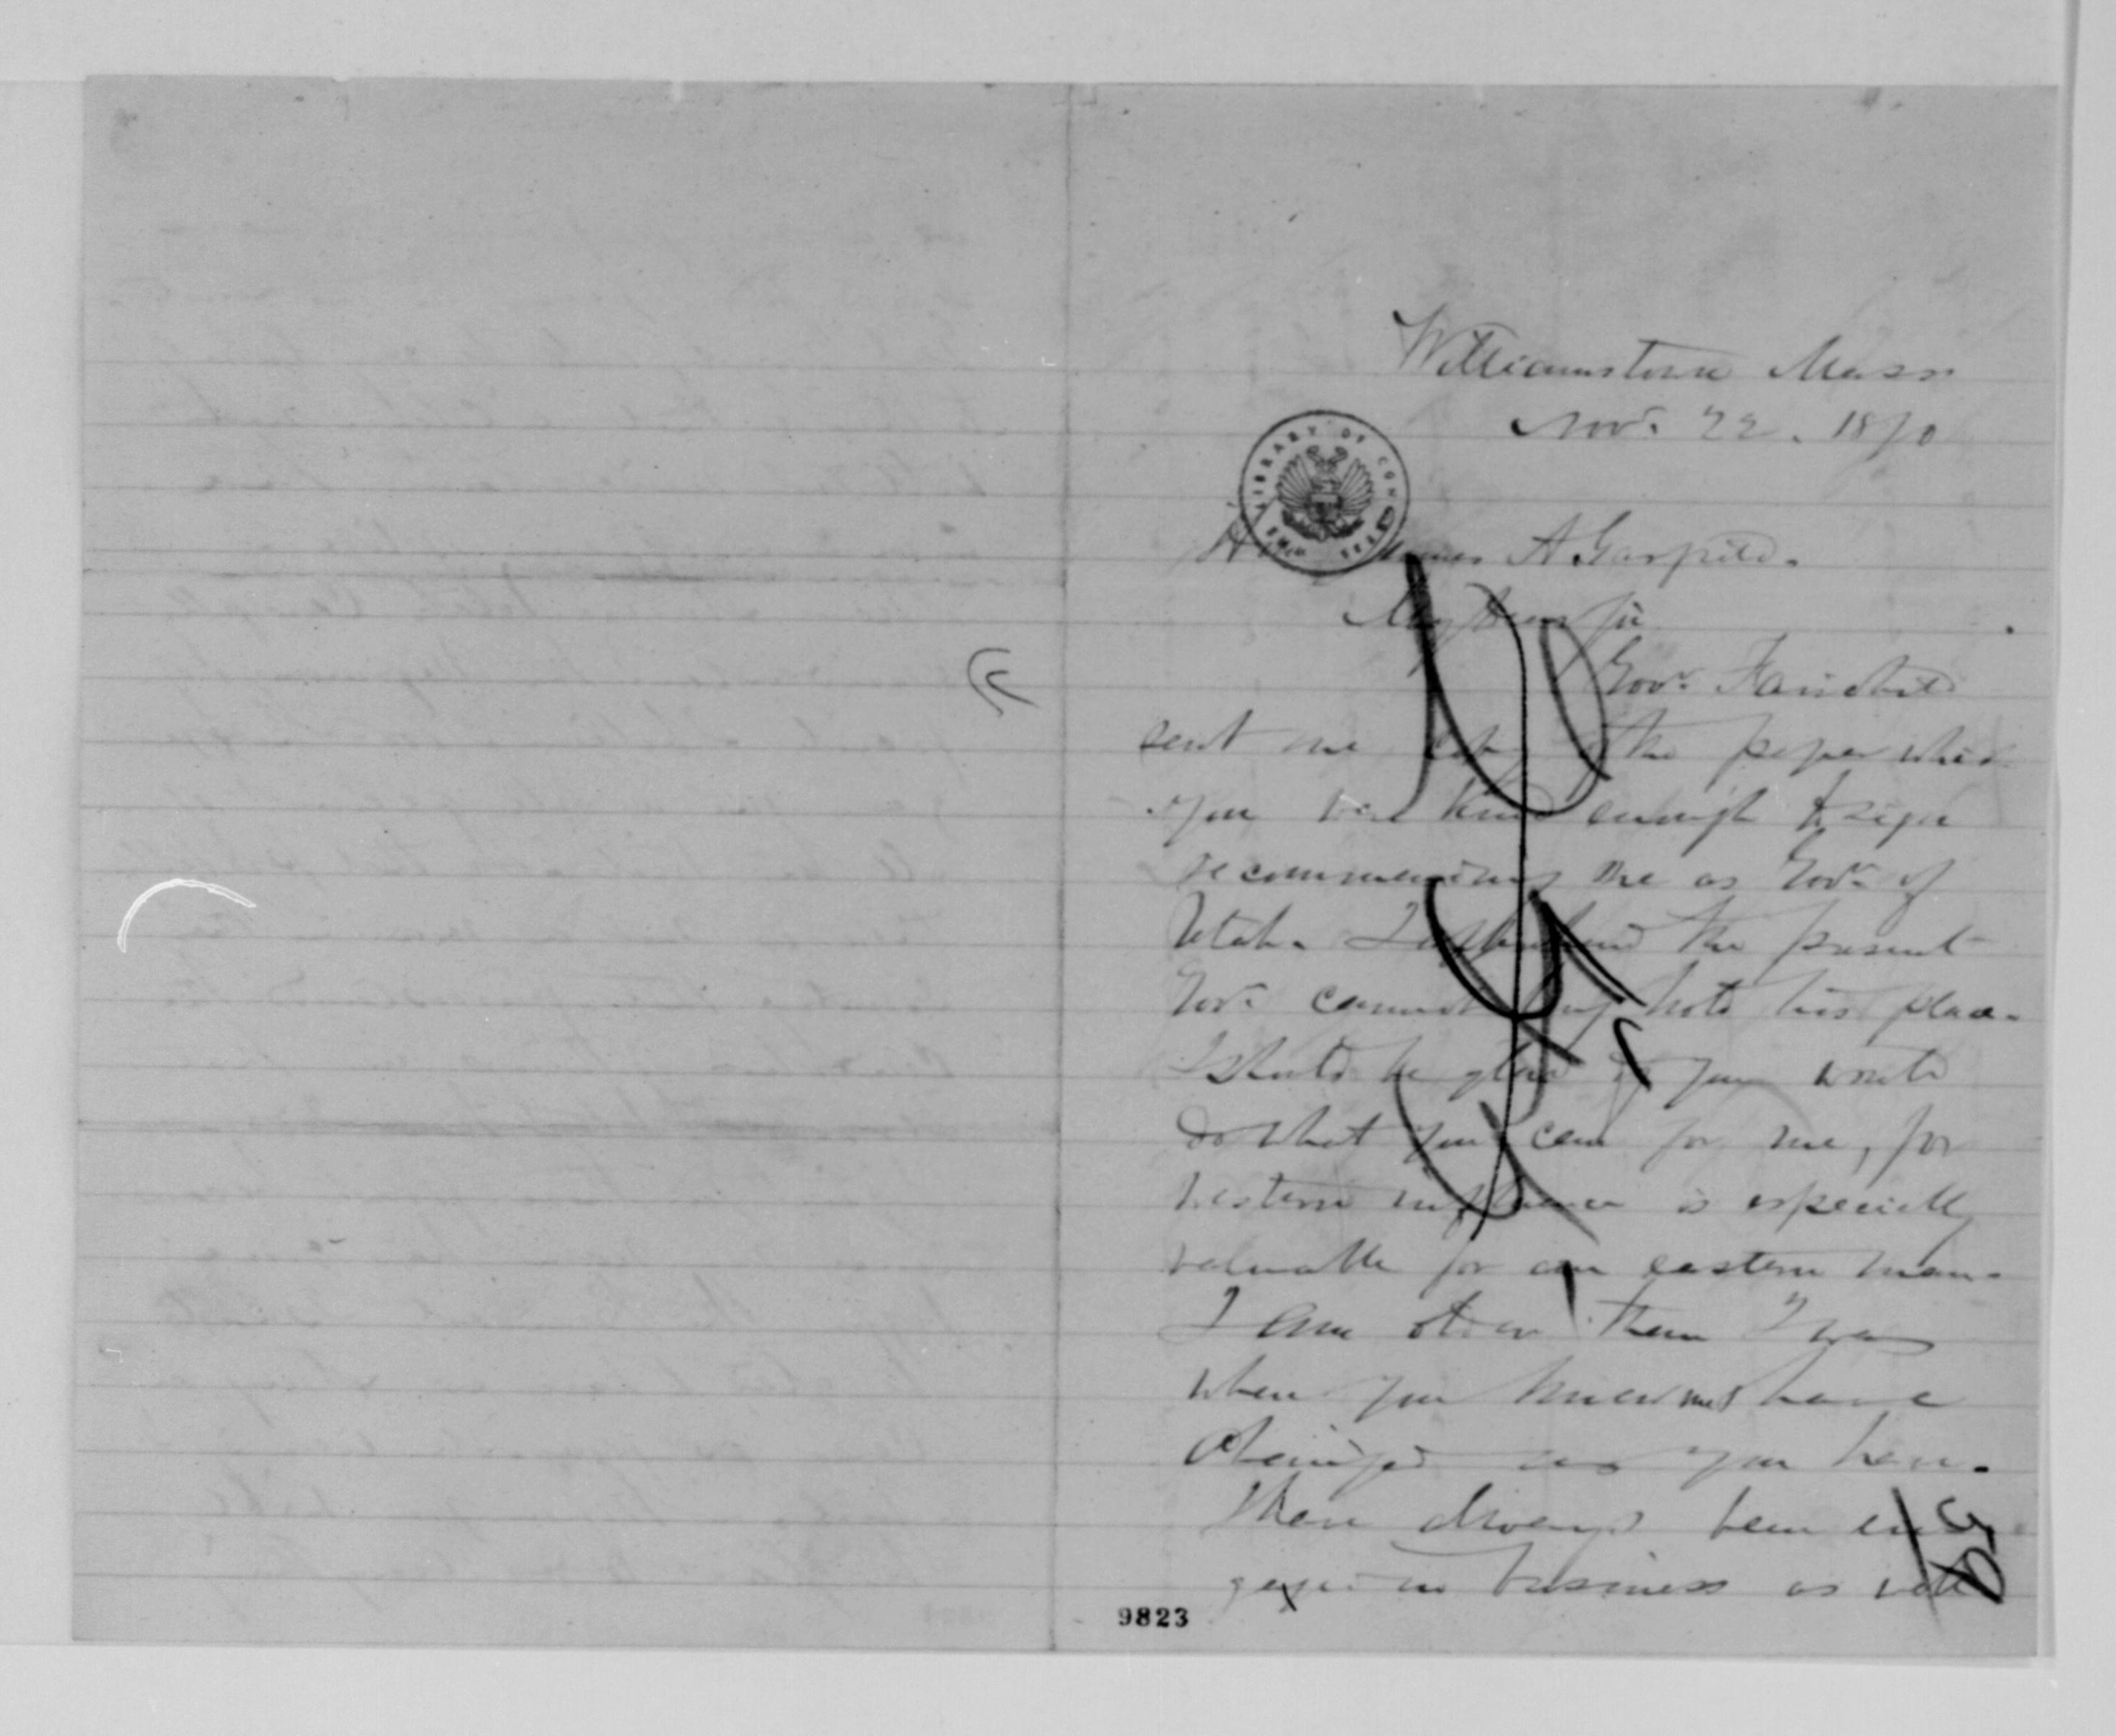 Williamstown Mass
Nov. 22. 1870
LIBRARY OF CONGRESS
James A Garfield.
My Dear Sir
Gov. Fairchild
sent me the paper which
you were kind enough to sign
recommending me as Gov. of
Utah. I the present
Gov. cannot long hold his place.
I should be glad if you would
do what you can for me, for
western influence is especially
valuable for an eastern man.
I am older than I was
when you knew me & have
changed as you have.
I have always been en-
gaged in business as well
9823